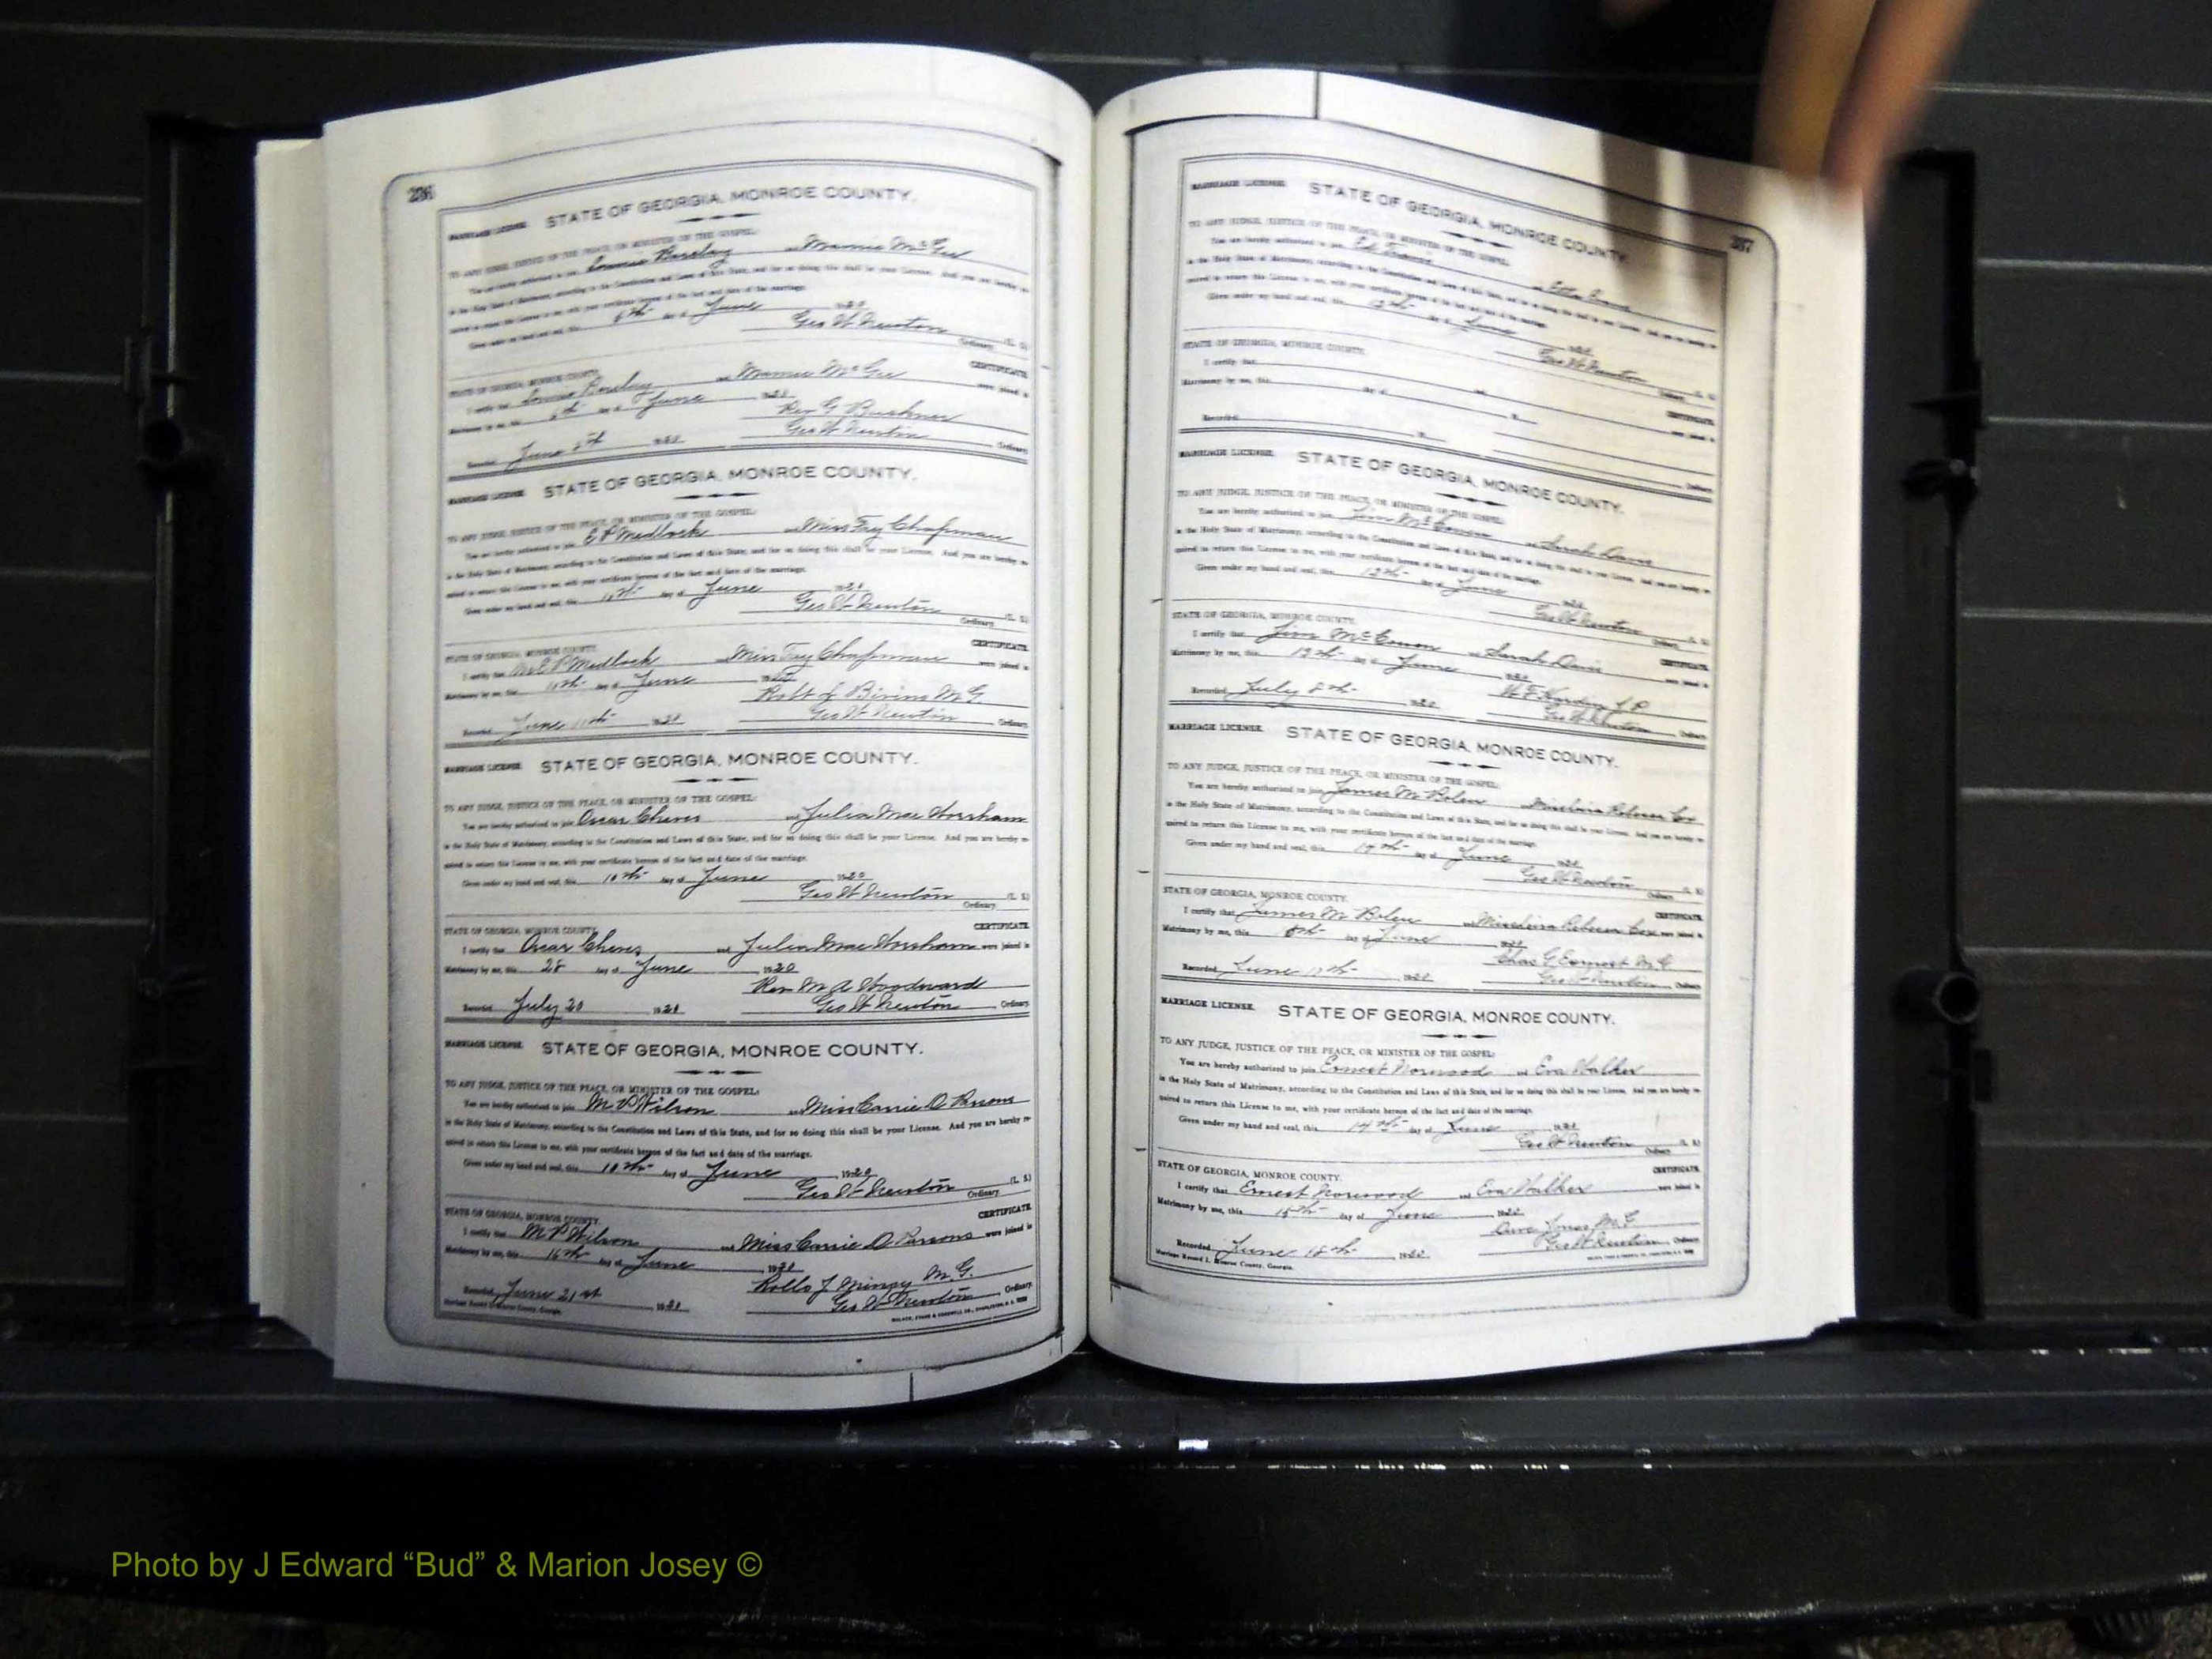 236
MARRIAGE LICENSE. STATE OF GEORGIA, MONROE COUNTY.
TO ANY JUDGE, JUSTICE OF THE PEACE, OR MINISTER OF THE GOSPEL:
You are hereby authorized to join Barclay and Mamie McGee
in the Holy State of Matrimony, according to the Constitution and Laws of this State, and for so doing this shall be your License. And you are hereby re-
quired to return this License to me, with your certificate hereon of the fact and date of the marriage.
Given under my hand and seal, this day of June 1920
Geo W Newton (L. S.)
Ordinary.
STATE OF GEORGIA, MONROE COUNTY. CERTIFICATE.
I certify that Barclay and Mamie McGee were joined in
Matrimony by me, this day of June 1920
Rev G Buckner
Recorded June 1920 Geo W Newton Ordinary.
MARRIAGE LICENSE. STATE OF GEORGIA, MONROE COUNTY.
TO ANY JUDGE, JUSTICE OF THE PEACE, OR MINISTER OF THE GOSPEL:
You are hereby authorized to join E P Medlock and Miss Chapman
in the Holy State of Matrimony, according to the Constitution and Laws of this State, and for so doing this shall be your License. And you are hereby re-
quired to return this License to me, with your certificate hereon of the fact and date of the marriage.
Given under my hand and seal, this day of June 1920
Geo W Newton (L. S.)
Ordinary.
STATE OF GEORGIA, MONROE COUNTY. CERTIFICATE.
I certify that E P Medlock and Miss Chapman were joined in
Matrimony by me, this day of June 1920
Bivins M G
Recorded June 11th 1920 Geo W Newton Ordinary.
MARRIAGE LICENSE. STATE OF GEORGIA, MONROE COUNTY.
TO ANY JUDGE, JUSTICE OF THE PEACE, OR MINISTER OF THE GOSPEL:
You are hereby authorized to join Oscar Cheves and Julia Mae Worsham
in the Holy State of Matrimony, according to the Constitution and Laws of this State, and for so doing this shall be your License. And you are hereby re-
quired to return this License to me, with your certificate hereon of the fact and date of the marriage.
Given under my hand and seal, this 10th day of June 1920
Geo W Newton (L. S.)
Ordinary.
STATE OF GEORGIA, MONROE COUNTY. CERTIFICATE.
I certify that Oscar Cheves and Julia Mae Worsham were joined in
Matrimony by me, this 28 day of June 1920
Rev M A Woodward
Recorded July 20 1920 Geo W Newton Ordinary.
MARRIAGE LICENSE. STATE OF GEORGIA, MONROE COUNTY.
TO ANY JUDGE, JUSTICE OF THE PEACE, OR MINISTER OF THE GOSPEL:
You are hereby authorized to join M P Wilson and Miss Carrie D Parsons
in the Holy State of Matrimony, according to the Constitution and Laws of this State, and for so doing this shall be your License. And you are hereby re-
quired to return this License to me, with your certificate hereon of the fact and date of the marriage.
Given under my hand and seal, this 10th day of June 1920
Geo W Newton (L. S.)
Ordinary.
STATE OF GEORGIA, MONROE COUNTY. CERTIFICATE.
I certify that M P Wilson and Miss Carrie D Parsons were joined in
Matrimony by me, this 16th day of June 1920
Rollo J M. G.
Recorded June 21st 1920 Geo W Newton Ordinary.
237
MARRIAGE LICENSE. STATE OF GEORGIA, MONROE COUNTY.
TO ANY JUDGE, JUSTICE OF THE PEACE, OR MINISTER OF THE GOSPEL:
You are hereby authorized to join Ed and Etta
in the Holy State of Matrimony, according to the Constitution and Laws of this State, and for so doing this shall be your License. And you are hereby re-
quired to return this License to me, with your certificate hereon of the fact and date of the marriage.
Given under my hand and seal, this 12th day of June 1920
Geo W Newton (L. S.)
Ordinary.
STATE OF GEORGIA, MONROE COUNTY. CERTIFICATE.
I certify that and were joined in
Matrimony by me, this day of
Recorded Ordinary.
MARRIAGE LICENSE. STATE OF GEORGIA, MONROE COUNTY.
TO ANY JUDGE, JUSTICE OF THE PEACE, OR MINISTER OF THE GOSPEL:
You are hereby authorized to join Jim and Sarah Davis
in the Holy State of Matrimony, according to the Constitution and Laws of this State, and for so doing this shall be your License. And you are hereby re-
quired to return this License to me, with your certificate hereon of the fact and date of the marriage.
Given under my hand and seal, this 12th day of June 1920
Geo W Newton (L. S.)
Ordinary.
STATE OF GEORGIA, MONROE COUNTY. CERTIFICATE.
I certify that Jim and Sarah Davis were joined in
Matrimony by me, this 12th day of June 1920
Recorded July 8th 1920 Geo W Newton Ordinary.
MARRIAGE LICENSE. STATE OF GEORGIA, MONROE COUNTY.
TO ANY JUDGE, JUSTICE OF THE PEACE, OR MINISTER OF THE GOSPEL:
You are hereby authorized to join James M Bolen and Miss Rebecca Cox
in the Holy State of Matrimony, according to the Constitution and Laws of this State, and for so doing this shall be your License. And you are hereby re-
quired to return this License to me, with your certificate hereon of the fact and date of the marriage.
Given under my hand and seal, this day of June 1920
Geo W Newton (L. S.)
Ordinary.
STATE OF GEORGIA, MONROE COUNTY. CERTIFICATE.
I certify that James M Bolen and Miss Rebecca Cox were joined in
Matrimony by me, this day of June 1920
Chas G Earnest M. G.
Recorded June 1920 Geo W Newton Ordinary.
MARRIAGE LICENSE. STATE OF GEORGIA, MONROE COUNTY.
TO ANY JUDGE, JUSTICE OF THE PEACE, OR MINISTER OF THE GOSPEL:
You are hereby authorized to join Ernest Norwood and Eva Walker
in the Holy State of Matrimony, according to the Constitution and Laws of this State, and for so doing this shall be your License. And you are hereby re-
quired to return this License to me, with your certificate hereon of the fact and date of the marriage.
Given under my hand and seal, this 14th day of June 1920
Geo W Newton (L. S.)
Ordinary.
STATE OF GEORGIA, MONROE COUNTY. CERTIFICATE.
I certify that Ernest Norwood and Eva Walker were joined in
Matrimony by me, this 15th day of June 1920
Jones M G
Recorded June 18th 1920 Geo W Newton Ordinary.
Marriage Record L Monroe County, Georgia.
Photo by J Edward “Bud” & Marion Josey ©